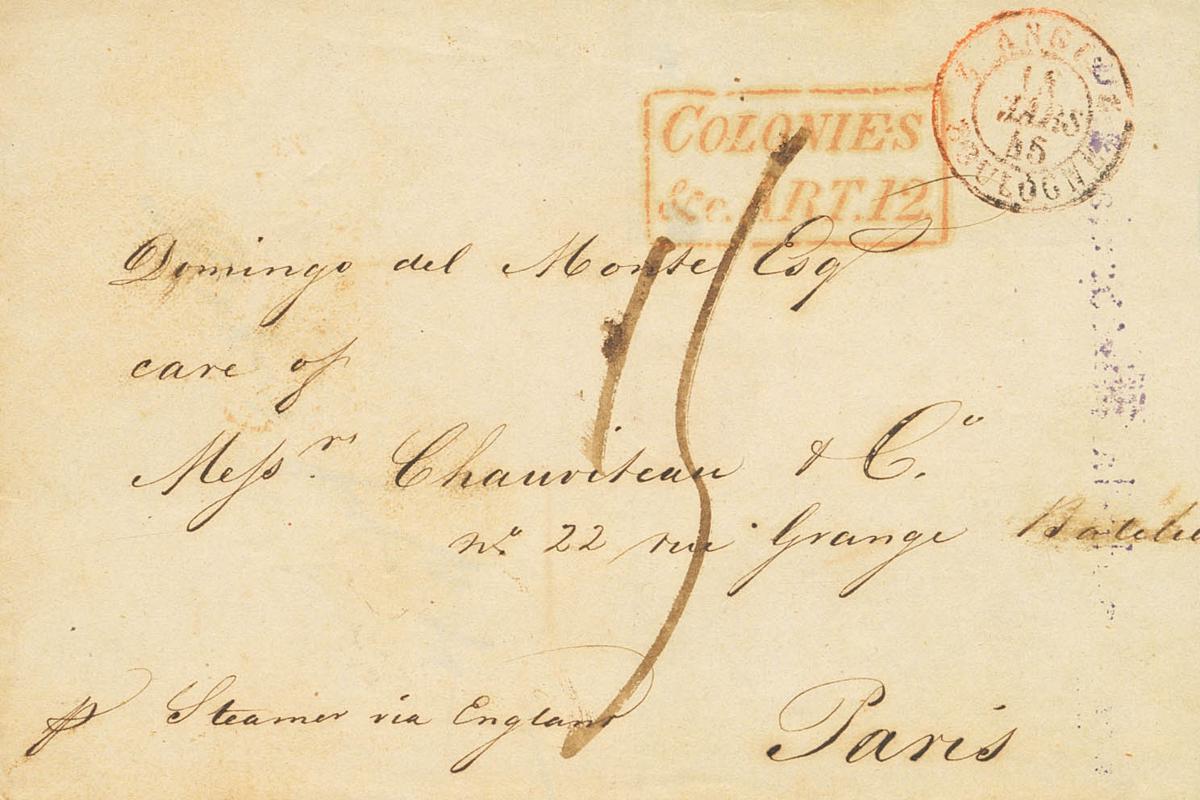 COLONIES
&c. ART. 12.
ANGL.
MARS
BOULOGNE
Domingo del Monte Esqr
care of
Messrs Chauviteau & Co.
No. 22 rue Grange
15
p Steamer via England
Paris